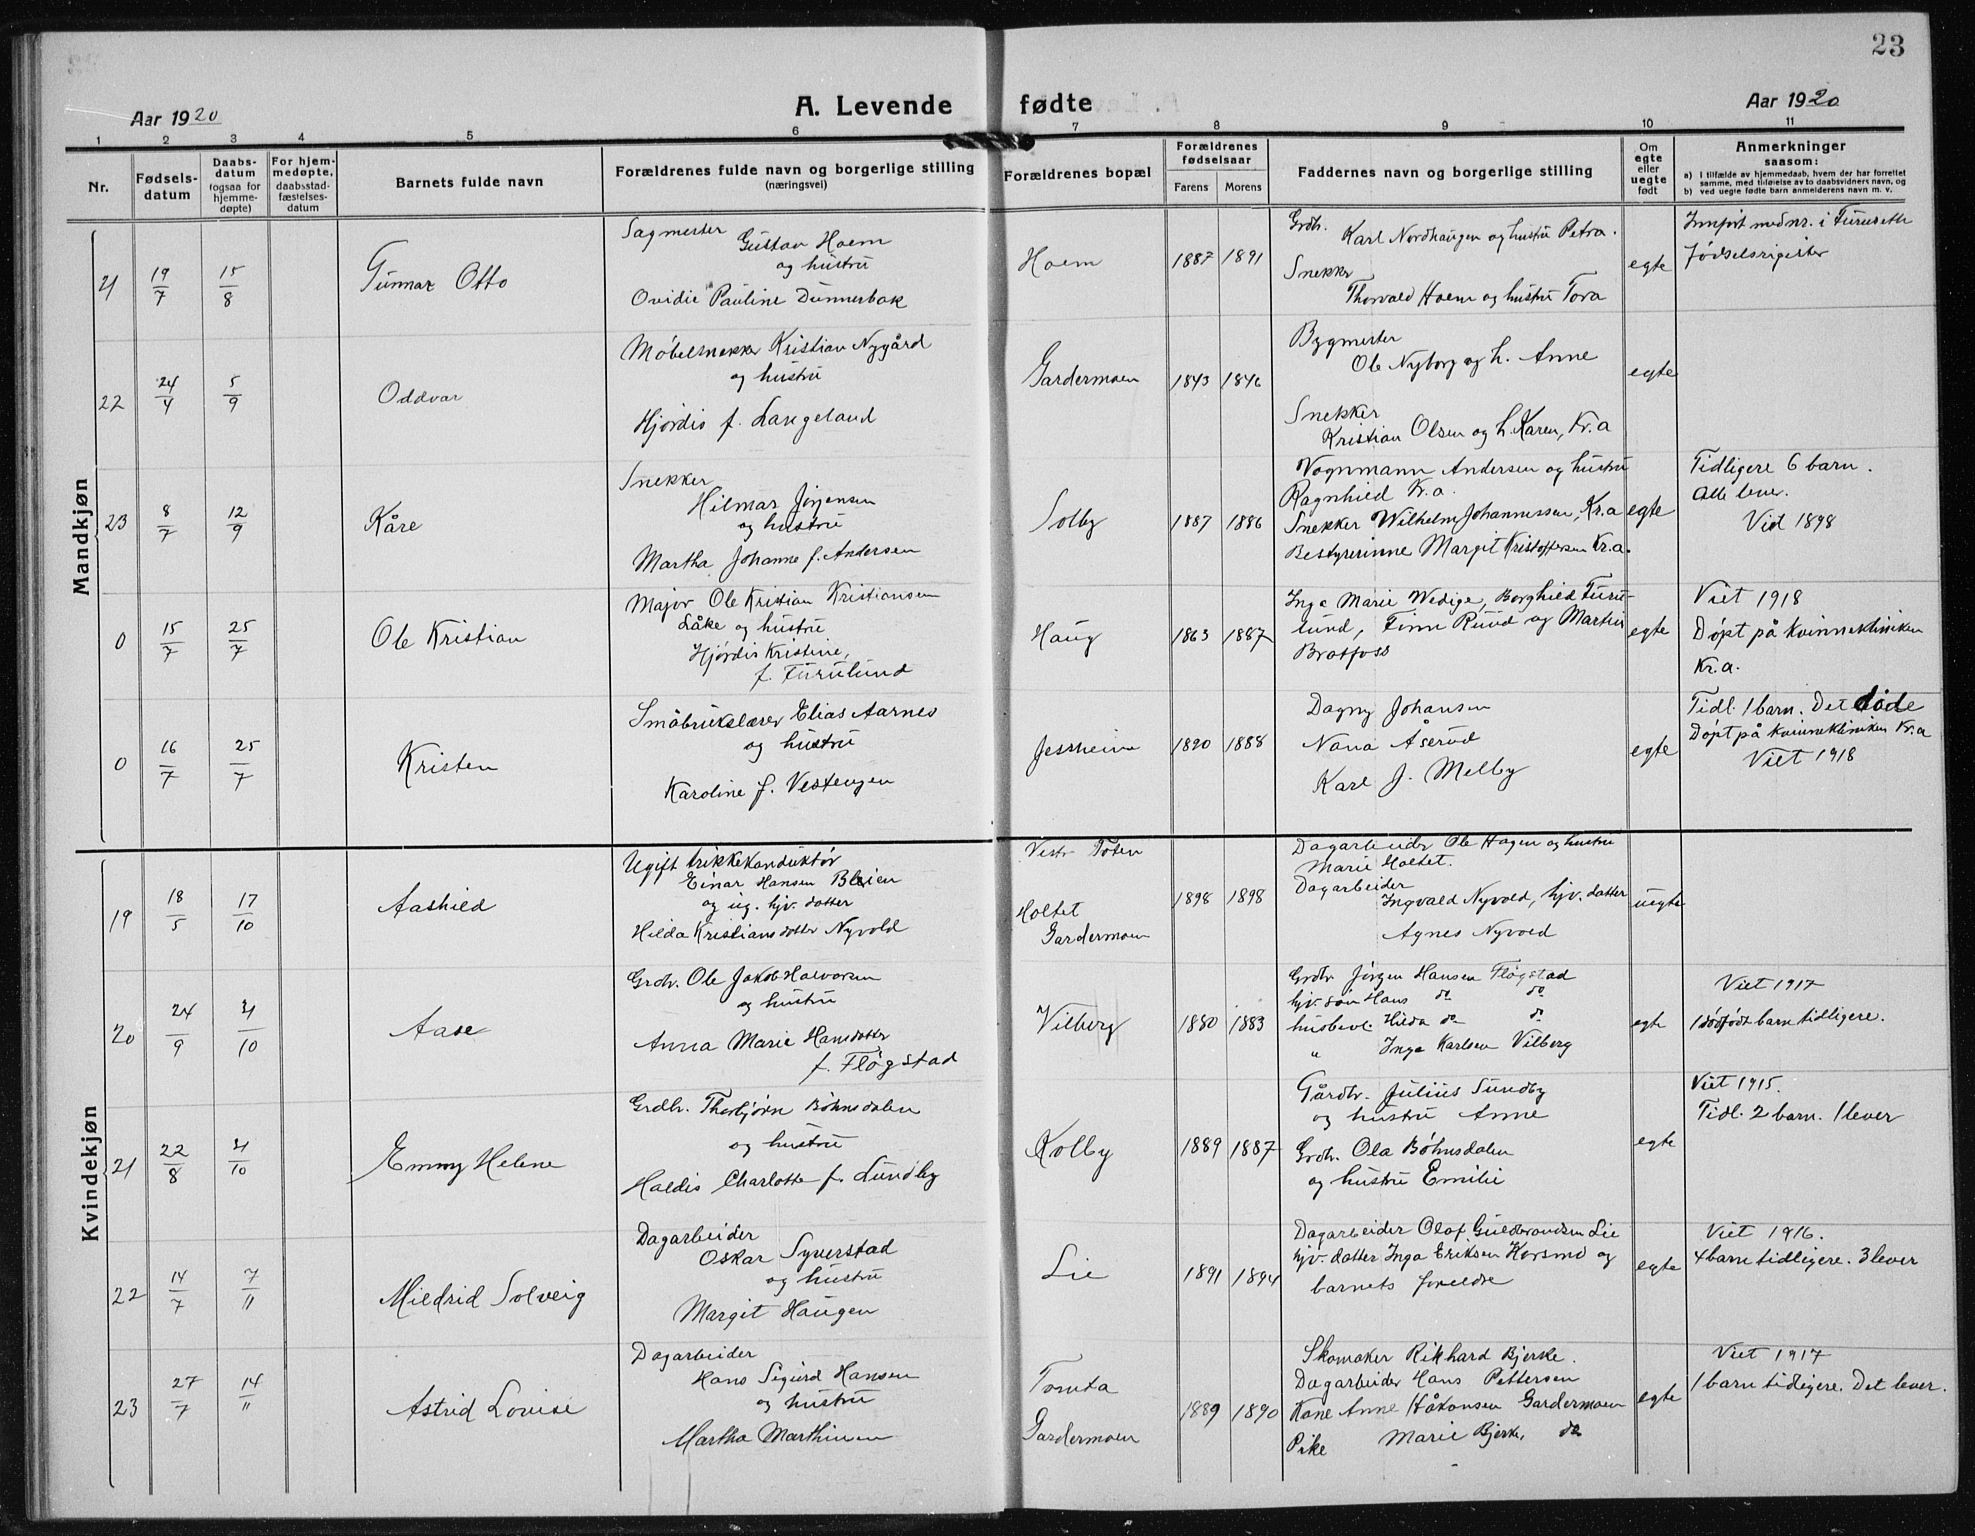 23
Aar 1920
A. Levende fødte
Aar 1920
1 2 3 4 5 6 7 8 9 10 11
Nr.
Fødsels-
datum
Daabs-
datum
(ogsaa for
hjemme-
døpte)
For hjem-
medøpte,
daabsstad-
fæstelses-
datum
Barnets fulde navn
Forældrenes fulde navn og borgerlige stilling
(næringsvei)
Forældrenes bopæl
Forældrenes
fødselsaar
Farens
Morens
Faddernes navn og borgerlige stilling
Om
egte
eller
uegte
født
Anmerkninger
saasom:
a) I tilfælde av hjemmedaab, hvem der har forrettet
samme, med tilføielse av to daabsvidners navn, og
b) ved uegte fødte barn anmelderens navn m. v.
Mandkjøn
21
19/7
15/8
Gunnar Otto
Sagmester
Gustav Hoem
og hustru
Ovidie Pauline Dunnerbak
Hoem
1887 1891
Grdbr.
Karl Nordhaugen og hustru Petra.
Snekker
Thorvald Hoem og hustru Tora
egte
Innført med nr. i Furuseth
fødselsrigister
22
24/4
5/9
Oddvar
Møbelsnekker Kristian Nygård
og hustru
Hjørdis f. Langeland
Gardermoen
1843 1846
Bygmester
Ole Nyborg og h. Anne
Snekker
Kristian Olsen og h. Karen, Kr.a
egte
23
8/7
12/9
Kåre
Snekker
Hilmar Jørgensen
og hustru
Martha Johanne f. Andersen
Solby
1887 1886
Vognmann Andersen og hustru
Ragnhild Kr.a.
Snekker Wilhelm Johannessen, Kr.a
Bestyrerinne Margit Kristoffersen Kr.a.
egte
Tidligere 6 barn.
Alle lever.
Vid 1898
0
15/7
25/7
Ole Kristian
Major Ole Kristian Kristiansen
Låke og hustru
Hjørdis Kristine,
f. Furulund
Haug
1863 1887
Inga Marie Wedige, Borghild Furu-
lund, Finn Ruud og Martin
Bratfoss
egte
Viet 1918
Døpt på kvinnekliniken
Kr.a.
0
16/7
25/7
Kristen
Småbrukslærer Elias Aarnes
og hustru
Karoline f. Vestengen
Jessheim
1890 1888
Dagny Johansen
Nana Åserud
Karl J. Melby
egte
Tidl. 1 barn. Det døde
Døpt på kvinnekliniken Kr.a
Viet 1918
Kvindekjøn
19
18/5
17/10
Aashild
Ugift trikkekonduktør
Einar Hansen Bleien
og ug. hjv. datter
Hilda Kristiansdatter Nyvold
Vestr. Toten
Holtet
Gardermoen
1898 1898
Dagarbeider Ole Hagen og hustru
Marie Holtet.
Dagarbeider
Ingvald Nyvold, hjv. datter
Agnes Nyvold
uegte
20
24/9
31/10
Aase
Grdbr. Ole Jakob Halvorsen
og hustru
Anna Marie Hansdatter
f. Fløgstad
Vilberg
1880 1883
Grdbr Jørgen Hansen Fløgstad
hjv. søn Hans do do
husbest. Hilda do do
" Inga Karlsen Vilberg
egte
Viet 1917
1 dødfødt barn tidligere.
21
22/8
31/10
Emmy Helene
Grdbr. Thorbjørn Bøhnsdalen
og hustru
Haldis Charlotte f. Sundby
Kolby
1889 1887
Gårdbr. Julius Sundby
og hustru Anne
Grdbr. Ola Bøhnsdalen
og hustru Emilie
egte
Viet 1915.
Tidl. 2 barn. 1 lever
22
14/7
7/11
Mildrid Solveig
Dagarbeider
Oskar Syverstad
og hustru
Margit Haugen
Lie
1891 1894
Dagarbeider Olaf Guldbrandsen Lie
hjv. datter Inga Eriksen Korsmo og
barnets foreldre
egte
Viet 1916.
4 barn tidligere. 3 lever
23
27/7
14/11
Astrid Lovise
Dagarbeider
Hans Sigurd Hansen
og hustru
Martha Marthinsen
Tomta
Gardermoen
1889 1890
Skomaker Rikhard Bjerke.
Dagarbeider Hans Pettersen
Kone Anne Håkonsen Gardermoen
Pike Marie Bjerke, do
egte
Viet 1917
1 barn tidligere. Det lever.